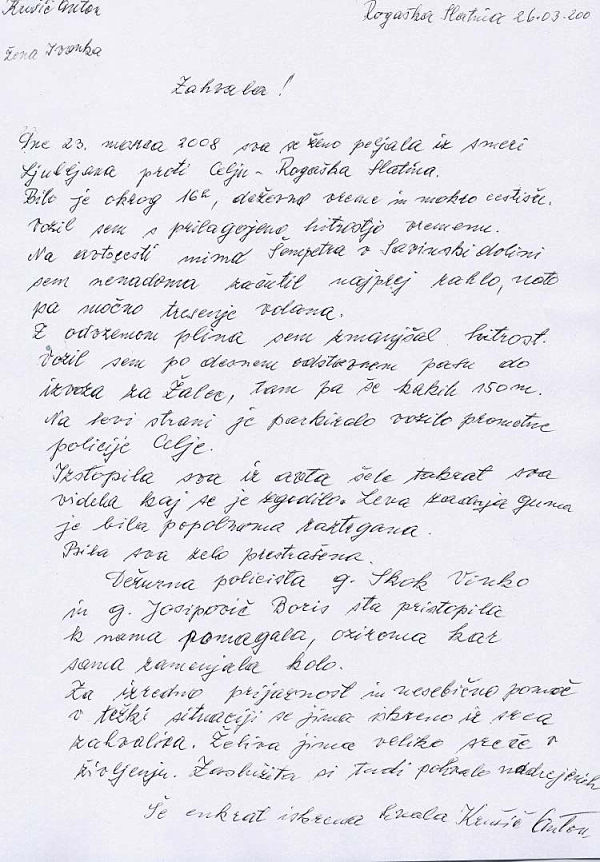 Krušič Anton
Rogaška Slatina 26.03.200
žena Ivanka
Zahvala!
Dne 23. marca 2008 sva se ženo peljala iz smeri
Ljubljana proti Celju - Rogaška Slatina.
Bilo je okrog 16h, deževno vreme in mokro cestišče.
Vozil sem s prilagojeno hitrostjo vremenu.
Na avtocesti mimo Šempetra v Savinski dolini
sem nenadoma začutil najprej rahlo, nato
pa močno tresenje volana.
Z odvzemom plina sem zmanjšal hitrost.
Vozil sem po desnem odstavnem pasu do
izvoza za Žalec, tam pa še kakih 150 m.
Na levi strani je parkiralo vozilo prometne
policije Celje.
Izstopila sva iz avta šele takrat sva
videla kaj se je zgodilo. Leva zadnja guma
je bila popolnoma raztrgana.
Bila sva zelo prestrašena.
Dežurna policista g. Skok Vinko
in g. Josipovič Boris sta pristopila
k nama pomagala, oziroma kar
sama zamenjala kolo.
Za izredno prijaznost in nesebično pomoč
v težki situaciji se jima iskreno iz srca
zahvaliva. Želiva jima veliko sreče v
življenju. Zaslužita si tudi pohvalo nadrejenih
Še enkrat iskrena hvala Krušič Anton